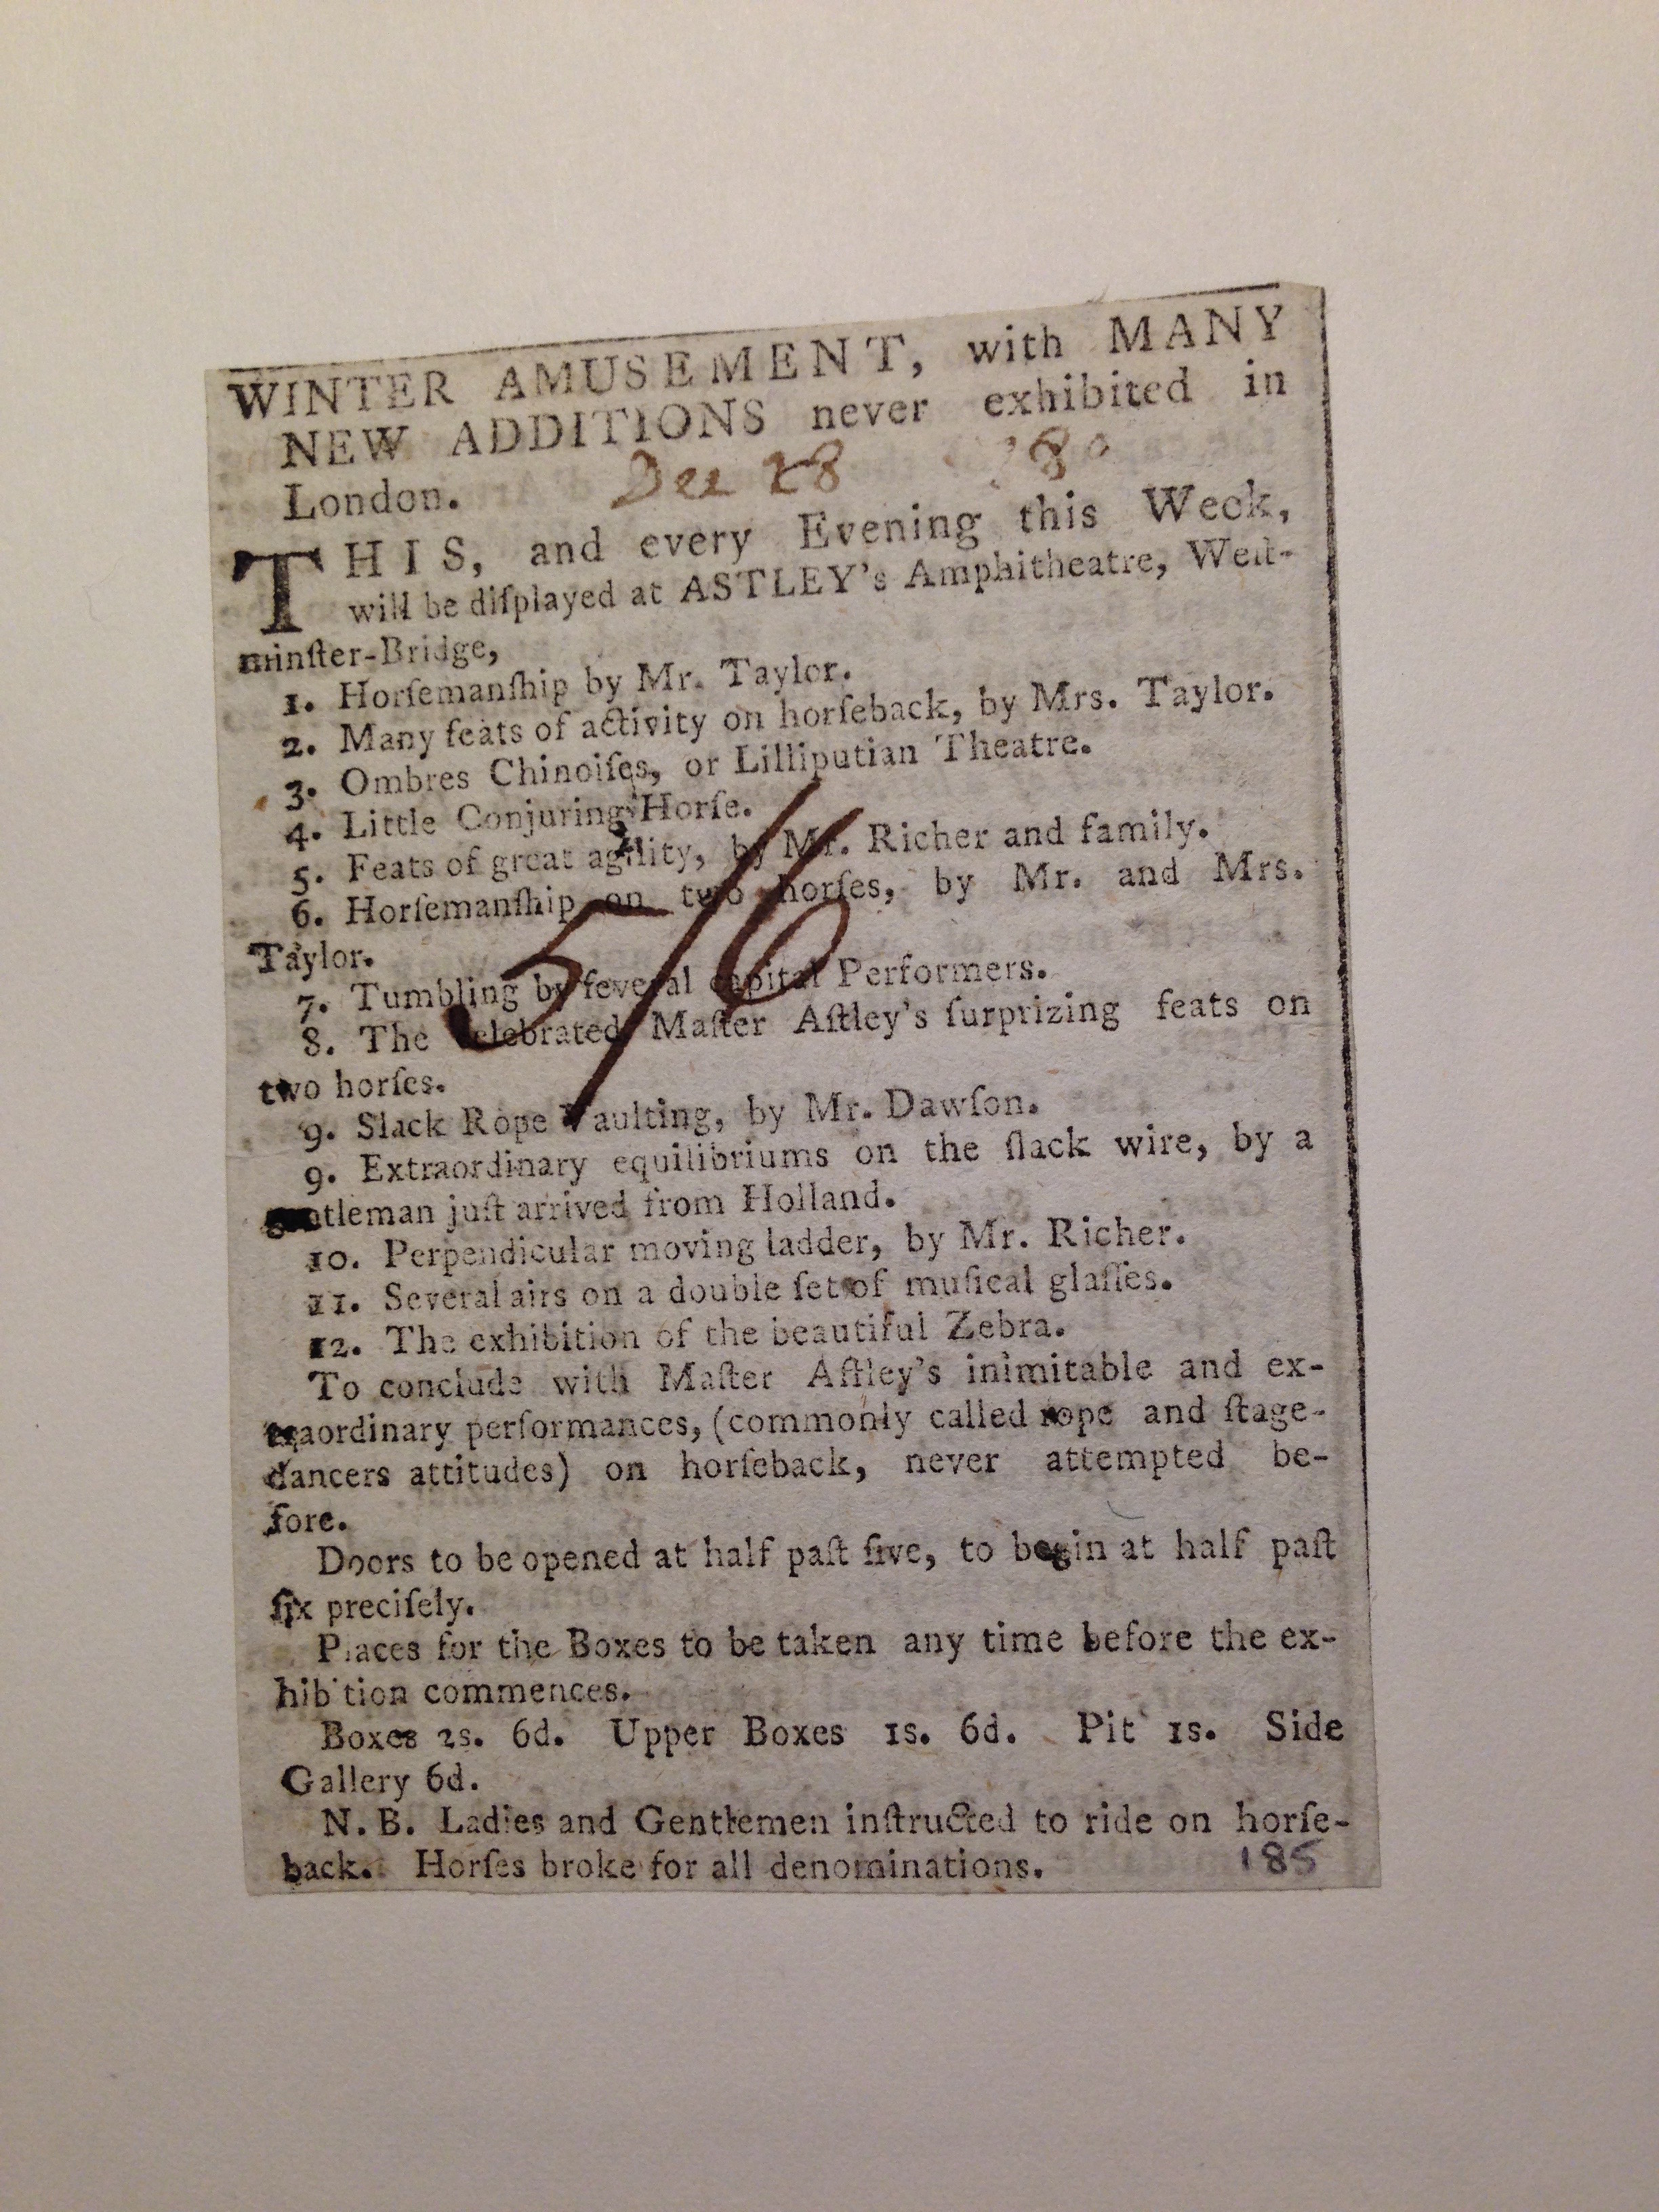 WINTER AMUSEMENT, with MANY
NEW ADDITIONS never exhibited in
London.
Dec 28 '80
THIS, and every Evening this Week,
will be diſplayed at ASTLEY's Amphitheatre, Weſt-
minſter-Bridge,
1. Horſemanſhip by Mr. Taylor.
2. Many feats of activity on horſeback, by Mrs. Taylor.
3. Ombres Chinoiſes, or Lilliputian Theatre.
4. Little Conjuring Horſe.
5. Feats of great agility, by Mr. Richer and family.
6. Horſemanſhip on two horſes, by Mr. and Mrs.
Taylor.
5/6
7. Tumbling by ſeveral capital Performers.
8. The celebrated Maſter Aſtley's ſurprizing feats on
two horſes.
9. Slack Rope Vaulting, by Mr. Dawſon.
9. Extraordinary equilibriums on the ſlack wire, by a
gentleman juſt arrived from Holland.
10. Perpendicular moving ladder, by Mr. Richer.
11. Several airs on a double ſet of muſical glaſſes.
12. The exhibition of the beautiful Zebra.
To conclude with Maſter Aſtley's inimitable and ex-
traordinary performances, (commonly called rope and ſtage-
dancers attitudes) on horſeback, never attempted be-
fore.
Doors to be opened at half paſt five, to begin at half paſt
ſix preciſely.
Places for the Boxes to be taken any time before the ex-
hibition commences.
Boxes 2s. 6d. Upper Boxes 1s. 6d. Pit 1s. Side
Gallery 6d.
N. B. Ladies and Gentlemen inſtructed to ride on horſe-
back. Horſes broke for all denominations.
185